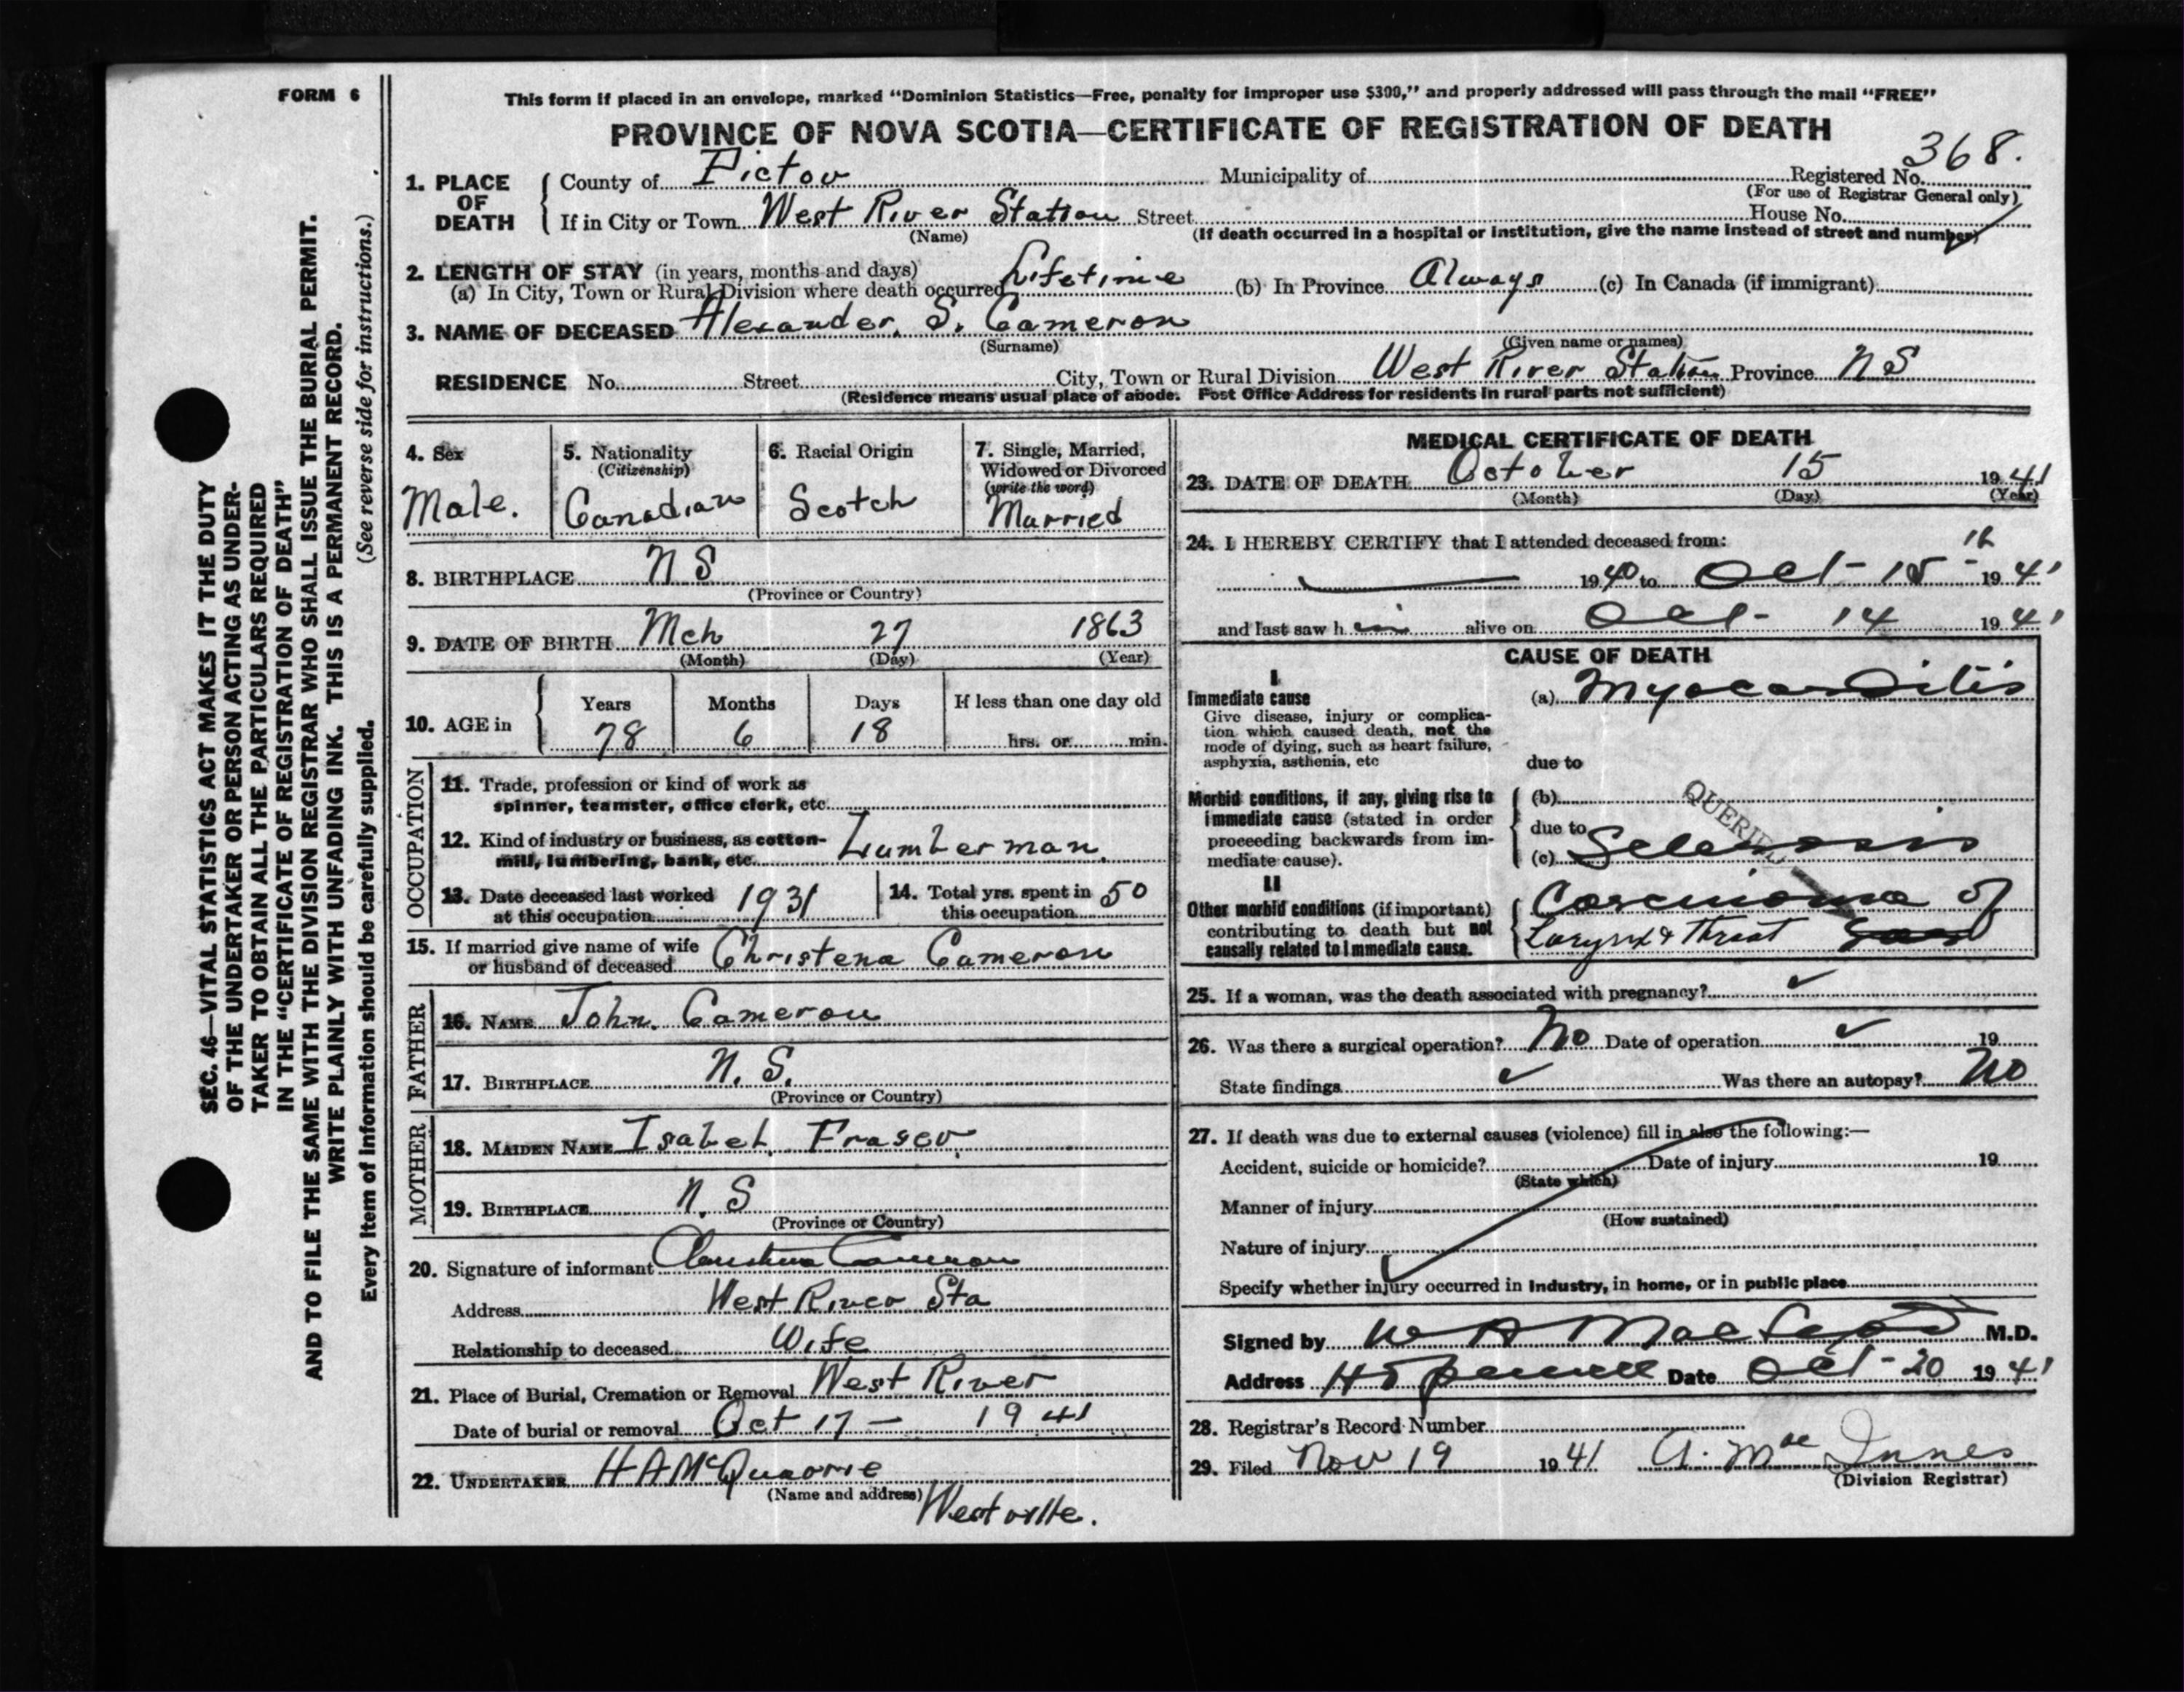 FORM 6
This form if placed in an envelope, marked "Dominion Statistics—Free, penalty for improper use $300," and properly addressed will pass through the mail "FREE"
PROVINCE OF NOVA SCOTIA—CERTIFICATE OF REGISTRATION OF DEATH
368.
1. PLACE OF DEATH
County of Pictou Municipality of Registered No.
(For use of Registrar General only)
If in City or Town West River Station Street House No.
(Name) (If death occurred in a hospital or institution, give the name instead of street and number)
2. LENGTH OF STAY (in years, months and days)
(a) In City, Town or Rural Division where death occurred Lifetime (b) In Province Always (c) In Canada (if immigrant)
3. NAME OF DECEASED Alexander. S. Cameron
(Surname) (Given name or names)
RESIDENCE No. Street City, Town or Rural Division West River Station Province N S
(Residence means usual place of abode. Post Office Address for residents in rural parts not sufficient)
4. Sex
Male.
5. Nationality
(Citizenship)
Canadian
6. Racial Origin
Scotch
7. Single, Married,
Widowed or Divorced
(write the word)
Married
8. BIRTHPLACE N S
(Province or Country)
9. DATE OF BIRTH Mch 27 1863
(Month) (Day) (Year)
10. AGE in
Years Months Days If less than one day old
78 6 18 hrs. or min.
OCCUPATION
11. Trade, profession or kind of work as
spinner, teamster, office clerk, etc.
12. Kind of industry or business, as cotton-
mill, lumbering, bank, etc. Lumberman.
13. Date deceased last worked
at this occupation 1931
14. Total yrs. spent in
this occupation 50
15. If married give name of wife
or husband of deceased Christena Cameron
FATHER
16. NAME John. Cameron
17. BIRTHPLACE N. S.
(Province or Country)
MOTHER
18. MAIDEN NAME Isabel Fraser
19. BIRTHPLACE N. S
(Province or Country)
20. Signature of informant Christena Cameron
Address West River Sta
Relationship to deceased Wife
21. Place of Burial, Cremation or Removal West River
Date of burial or removal Oct 17 — 1941
22. UNDERTAKER H A McQuarrie
(Name and address) Westville.
MEDICAL CERTIFICATE OF DEATH
23. DATE OF DEATH October 15 1941
(Month) (Day) (Year)
24. I HEREBY CERTIFY that I attended deceased from:
16
1940 to Oct - 15 - 1941
and last saw h im alive on Oct - 14 1941
CAUSE OF DEATH
I
Immediate cause
Give disease, injury or complica-
tion which caused death, not the
mode of dying, such as heart failure,
asphyxia, asthenia, etc
(a) Myocarditis
due to
Morbid conditions, if any, giving rise to
immediate cause (stated in order
proceeding backwards from im-
mediate cause).
(b)
due to
(c) Sclerosis
QUERIED
II
Other morbid conditions (if important)
contributing to death but not
causally related to immediate cause.
Carcinoma of
Larynx & Throat
25. If a woman, was the death associated with pregnancy? ✓
26. Was there a surgical operation? No Date of operation ✓ 19
State findings ✓ Was there an autopsy? No
27. If death was due to external causes (violence) fill in also the following:—
Accident, suicide or homicide? Date of injury 19
(State which)
Manner of injury
(How sustained)
Nature of injury
Specify whether injury occurred in industry, in home, or in public place
Signed by W A MacLeod M.D.
Address Hopewell Date Oct - 20 1941
28. Registrar's Record Number
29. Filed Nov 19 1941 A. MacInnes
(Division Registrar)
SEC. 46—VITAL STATISTICS ACT MAKES IT THE DUTY
OF THE UNDERTAKER OR PERSON ACTING AS UNDER-
TAKER TO OBTAIN ALL THE PARTICULARS REQUIRED
IN THE "CERTIFICATE OF REGISTRATION OF DEATH"
AND TO FILE THE SAME WITH THE DIVISION REGISTRAR WHO SHALL ISSUE THE BURIAL PERMIT.
WRITE PLAINLY WITH UNFADING INK. THIS IS A PERMANENT RECORD.
Every item of information should be carefully supplied. (See reverse side for instructions.)